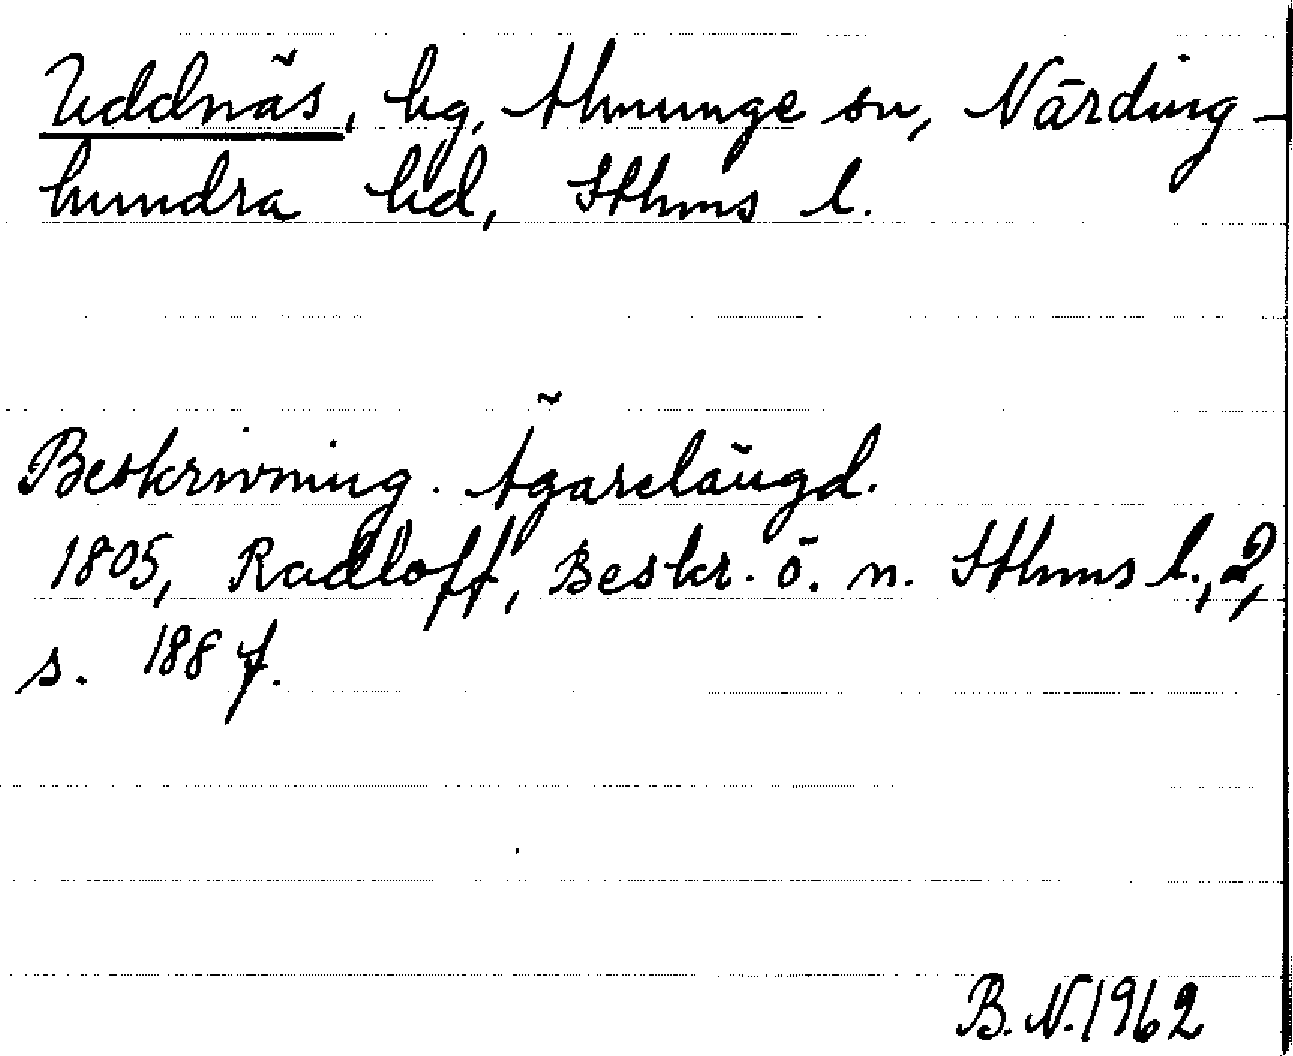 Uddnäs, hg, Almunge sn, Närding-
hundra hd, Sthms l.
Beskrivning. Ägarelängd.
1805, Radloff, Beskr. ö. n. Sthms l., 2,
s. 188 f.
B.N. 1962